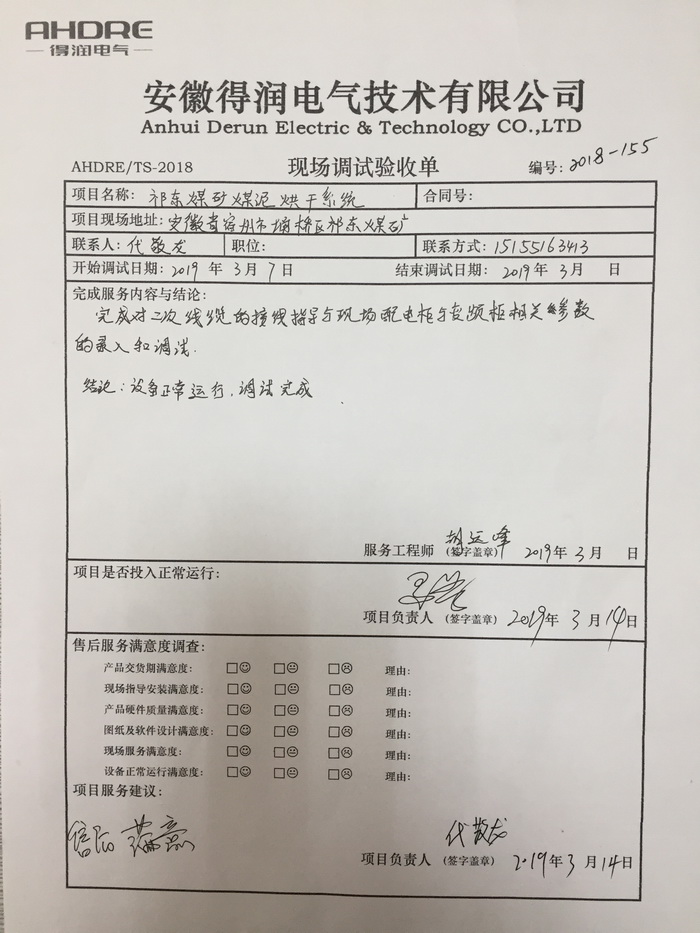 AHDRE
得润电气
安徽得润电气技术有限公司
Anhui Derun Electric & Technology CO.,LTD
AHDRE/TS-2018 现场调试验收单 编号: 2018-155
项目名称: 祁东煤矿煤泥烘干系统 合同号:
项目现场地址: 安徽省宿州市埇桥区祁东煤矿
联系人: 代敬龙 职位: 联系方式: 15155163413
开始调试日期: 2019 年 3 月 7 日 结束调试日期: 2019 年 3 月 日
完成服务内容与结论:
完成对二次线缆的接线指导与现场配电柜与变频柜相关参数
的录入和调试.
结论: 设备正常运行, 调试完成
服务工程师 (签字盖章) 胡运峰 2019 年 3 月 日
项目是否投入正常运行:
项目负责人 (签字盖章) 2019 年 3 月 14 日
售后服务满意度调查:
产品交货期满意度: □☺ □😐 □☹ 理由:
现场指导安装满意度: □☺ □😐 □☹ 理由:
产品硬件质量满意度: □☺ □😐 □☹ 理由:
图纸及软件设计满意度: □☺ □😐 □☹ 理由:
现场服务满意度: □☺ □😐 □☹ 理由:
设备正常运行满意度: □☺ □😐 □☹ 理由:
项目服务建议:
售后 满意
项目负责人 (签字盖章) 代敬龙 2019 年 3 月 14 日